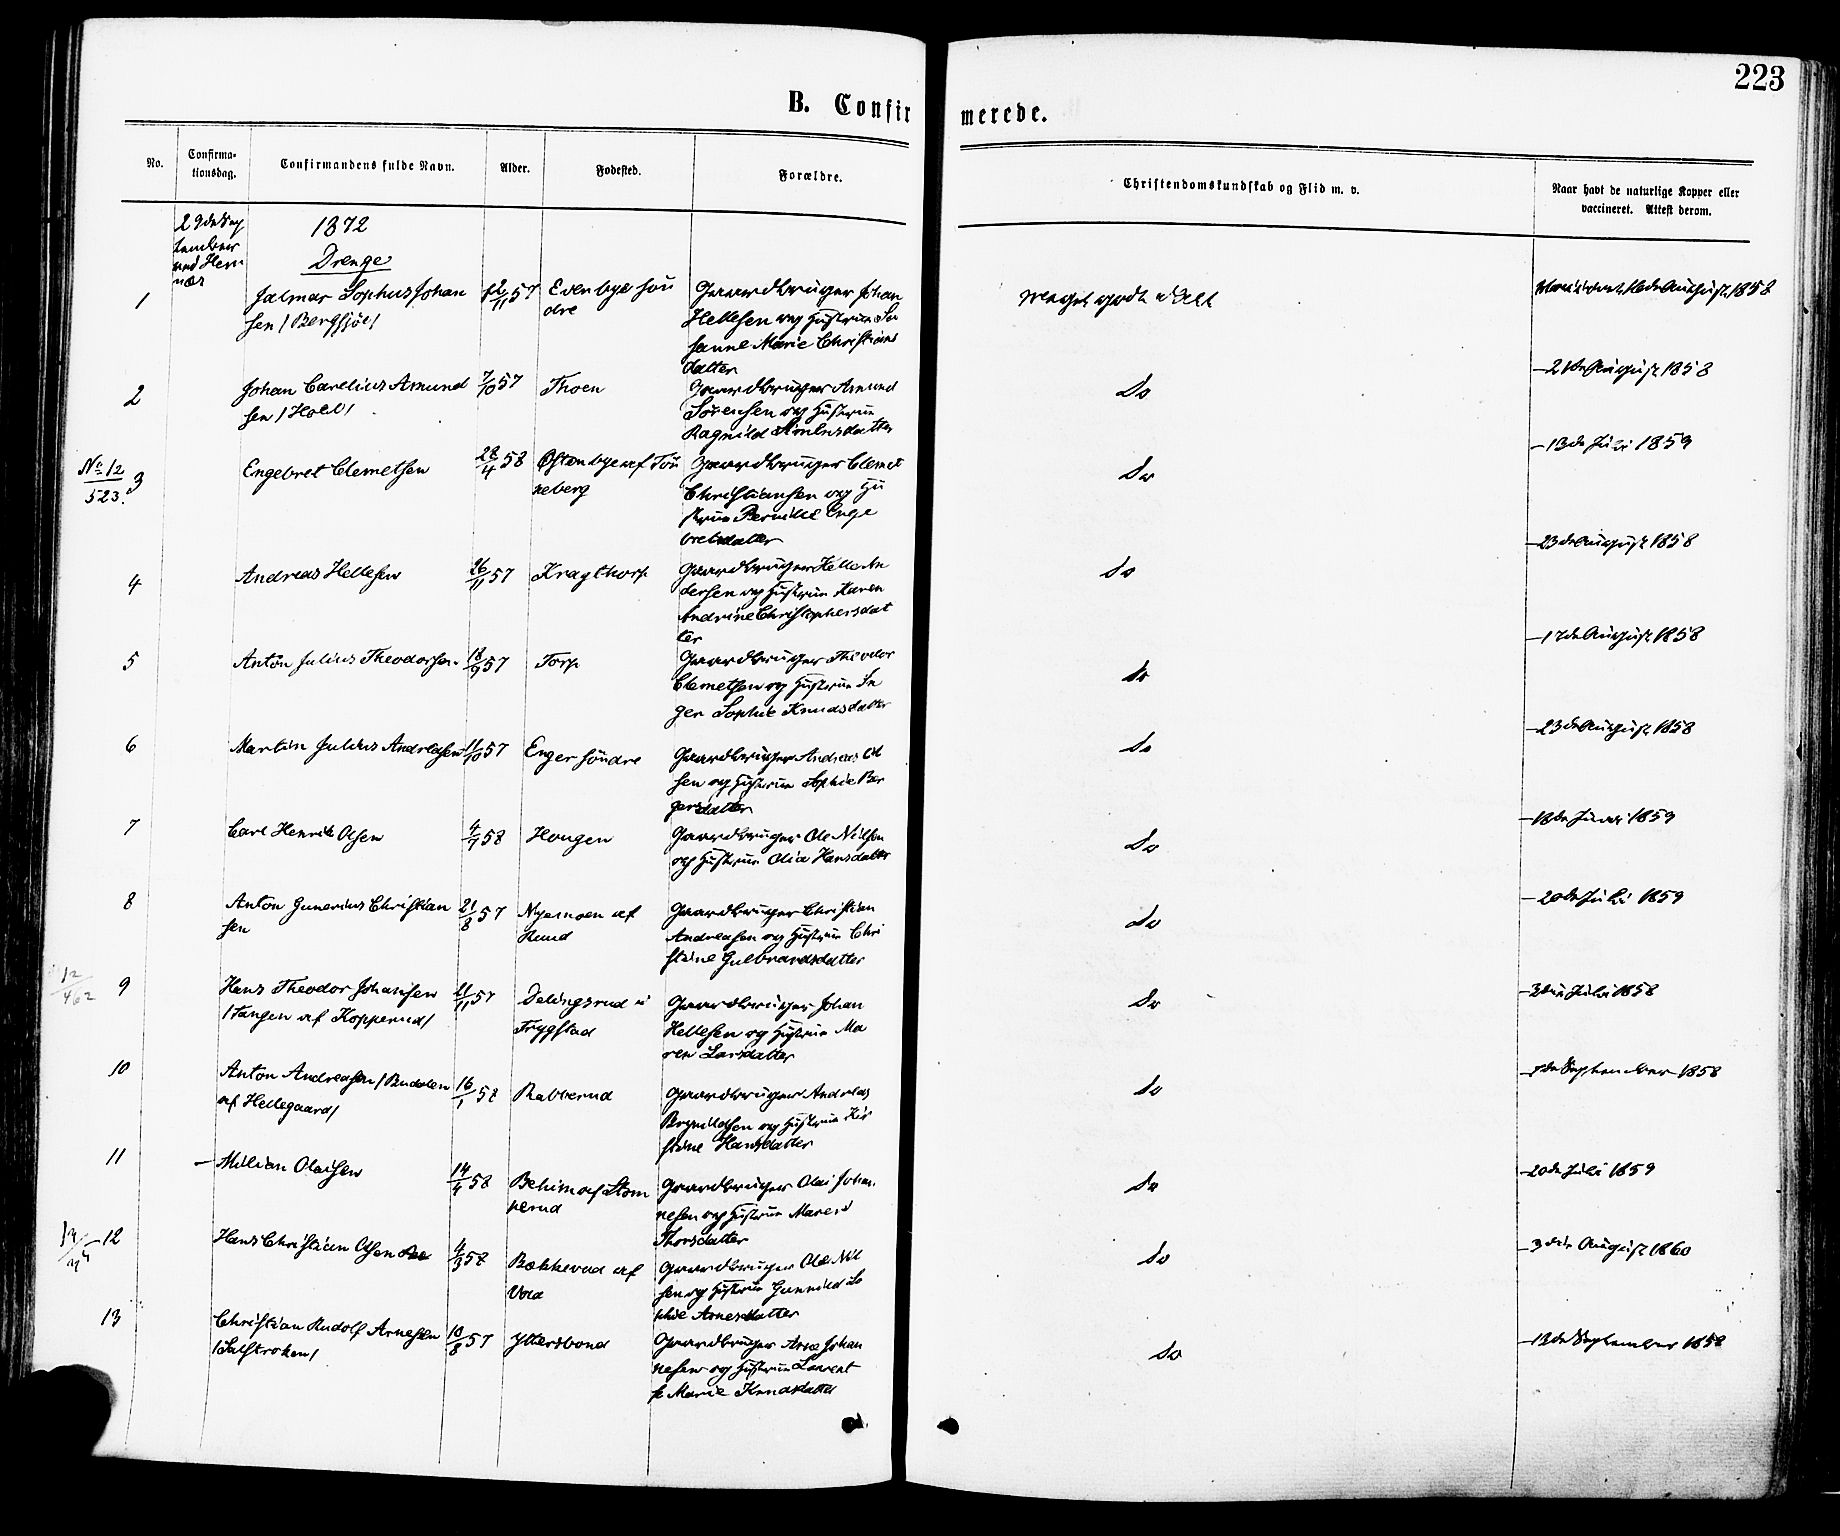 223
B. Confirmerede.
No.
Confirma-
tionsdag.
Confirmandens fulde Navn.
Alder.
Fødested.
Forældre.
Christendomskundskab og Flid m. v.
Naar havt de naturlige Kopper eller
vaccineret. Attest derom.
29de Sep
tember
ved Hem
næs
1872
Drenge
1
Jalmar Sophus Johan
sen / Bergsjøe/
12/11 57
Evenbye søn
dre
Gaardbruger Johan
Hellesen og Hustrue Su
sanne Marie Christians
datter
Meget godt
August 1858
2
Johan Carelius Amund
sen / Holll/
7/10 57
Thoen
Gaardbruger Amund
Sørensen og Hustrue
Ragnild
Do
– 21de August 1858
No 12
523.
3
Engebret Clemetsen
28/4 58
Østenbye af Tøn
neberg
Gaardbruger Clemet
Christiansen og Hu
strue Pernille Enge
bretsdatter
Do
– 13de Juli 1859
4
Andreas Hellesen
26/11 57
Kragthorp
Gaardbruger Helle An
dersen og Hustrue Karen
Andrine Christophersdat
ter
Do
– 23de August 1858
5
Anton Julius Theodorsen
18/9 57
Torp
Gaardbruger Theodor
Clemetsen og Hustrue In
ger Sophie Knudsdatter
Do
– 17de August 1858
6
Martin Julius Andreasen
11/10 57
Enger søndre
Gaardbruger Andreas Ol
sen og Hustrue Sophie Bør
gersdatter
Do
– 23de August 1858
7
Carl Henrik Olsen
4/7 58
Hougen
Gaardbruger Ole Nilsen
og Hustrue Olia Hansdatter
Do
– 18de Juni 1859
8
Anton Gunerius Christian
sen
21/8 57
Nyemoen af
Rund
Gaardbruger Christian
Andreasen og Hustrue Chri
stine Gulbrandsdatter
Do
– 20de Juli 1859
12
462
9
Hans Theodor Johansen
/Tangen af Kopperud/
21/11 57
Delingsrud i
Trygstad
Gaardbruger Johan
Hellesen og Hustrue Ma
ren Larsdatter
Do
Juli 1858
10
Anton Andreasen / Budalen
af Hellegaard/
16/1 58
Rabberud
Gaardbruger Andreas
Brynildsen og Hustrue Kir
stine Hansdatter
Do
September 1858
11
– Milian Olaisen
14/4 58
Behim af Stom
perud
Gaardbruger Olai Johan
nesen og Hustrue Maren
Thorsdatter
Do
– 20de Juli 1859
12
Hans Christian Olsen
4/3 58
Bækkevad af
Vold
Gaardbruger Ole Nil
sen og Hustrue Gunnild So
phie Arnesdatter
Do
– 3die August 1860
13
Christian Rudolf Arnesen
/Sulstroken/
10/8 57
Ytterbond
Gaardbruger Arne Johan
nesen og Hustrue Lovent
se Marie Knudsdatter
Do
– 13de September 1858